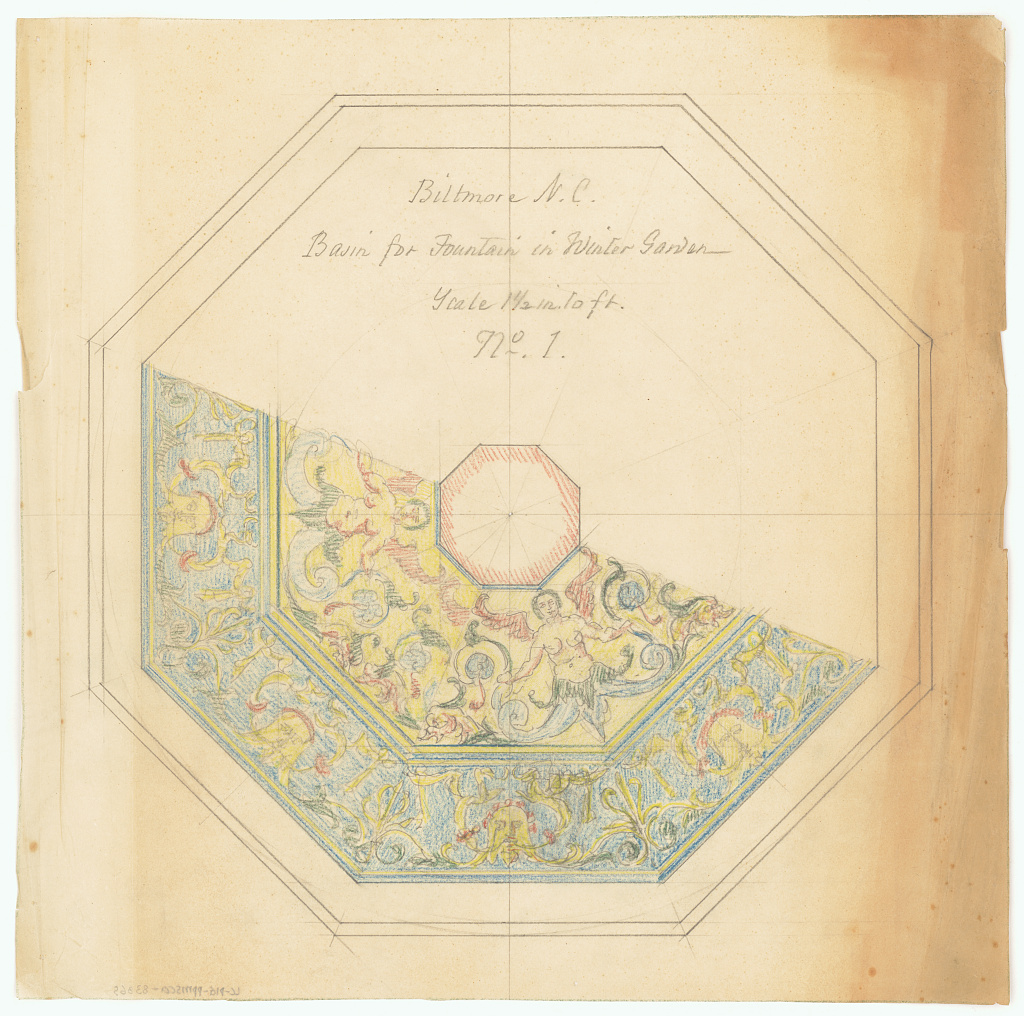 Biltmore N.C.
Basin for Fountain in Winter Garden
Scale 1½ in. to ft.
No. 1.
LC-DIG-PPMSCA-83365